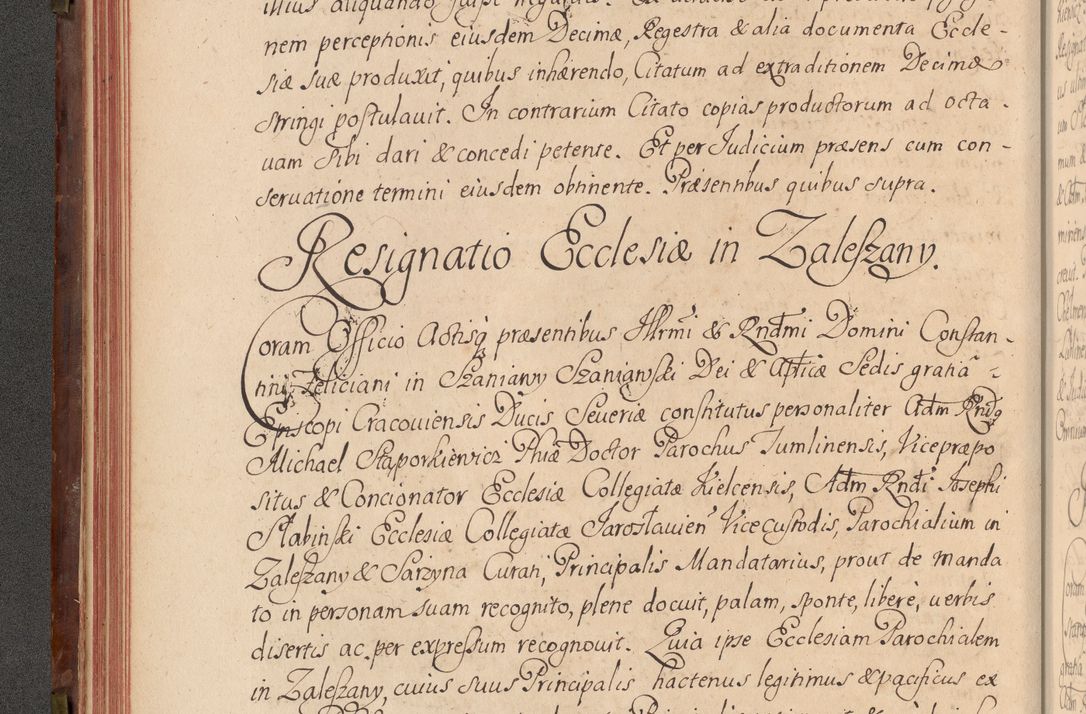 nem perceptionis eiusdem Decimæ, Regestra & alia documenta Eccle-
siæ suæ produxit, quibus inhærendo, Citatum ad extraditionem Decimæ
stringi postulauit. In contrarium Citato copias productorum ad octa-
uam Sibi dari & concedi petente. Et per Iudicium præsens cum con-
seruatione termini eiusdem obtinente. Præsentibus quibus supra.
Resignatio Ecclesiæ in Zaleszany.
Coram Officio Actisq præsentibus Illrmi & Rndmi Domini Constan-
tini Feliciani in Szaniawy Szaniawski Dei & Apticæ Sedis gratia
Episcopi Cracouiensis Ducis Seueriæ constitutus personaliter Adm Rndq
Michael Stąporkiewicz Phiæ Doctor Parochus Tumlinensis, Vicepræpo
situs & Concionator Ecclesiæ Collegiatæ Kielcensis, Adm Rndi Iosephi
Słabinski Ecclesiæ Collegiatæ Iarosłauien Vicecustodis, Parochialium in
Zaleszany & Sarzyna Curati, Principalis Mandatarius, prout de manda
to in personam suam recognito, plene docuit, palam, sponte, libere, uerbis
disertis ac per expressum recognouit. Quia ipse Ecclesiam Parochialem
in Zaleszany, cuius suus Principalis hactenus legitimus & pacificus ex